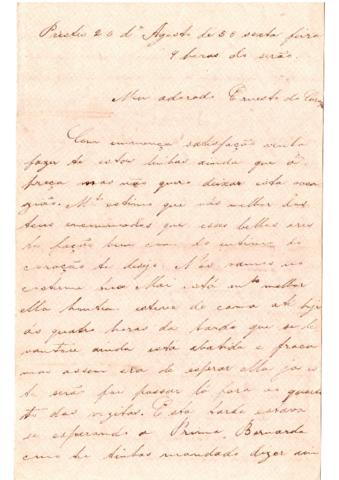 20 d' Agosto de sexta feira
9 horas do serão.
Meu adorado Ernesto do
Com immensa satisfação venho
fazer te estas linhas ainda que á
preça mas não quero deixar esta occa
sião. estimo que vás melhor dos
teus encommodos que esses bellos ares
te fação bem como do intimo do
coração te desejo. Nós vamos no
costume tua Mai está melhor
ella hontem esteve de cama até hoje
ás quatro horas da tarde que se le
vantou ainda esta abatida e fraca
mas assim era de esperar ella ja es
te serão foi passar lo para o quar
to das vizitas. Esta tarde estava
se esperando a Prima Bernarda
como lhe tinhas mandado dizer